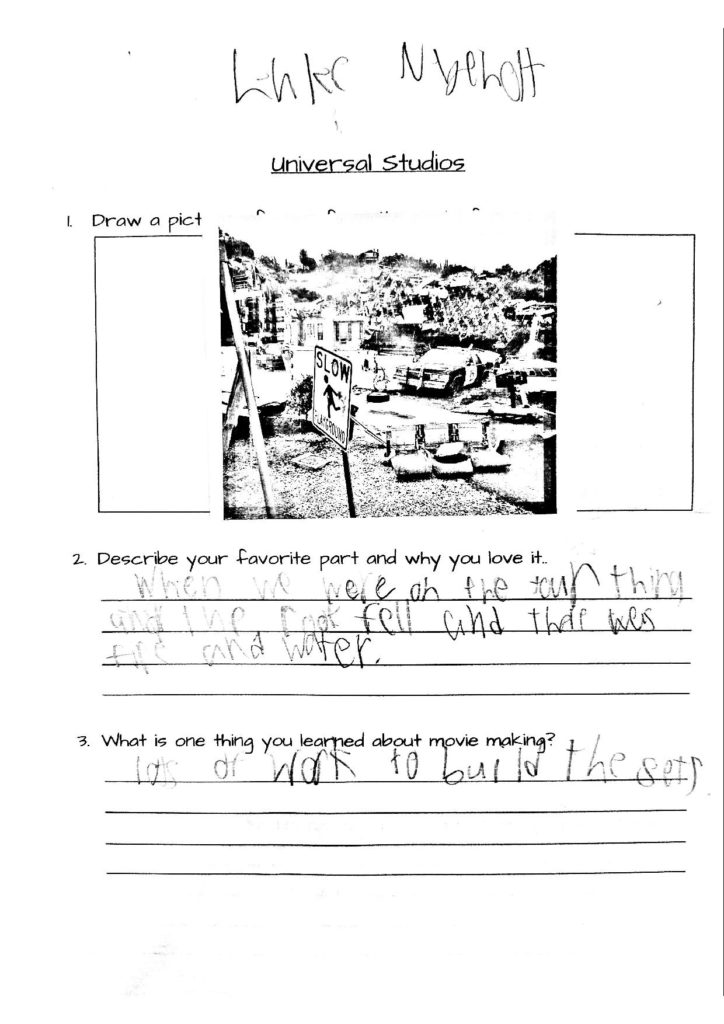 Universal Studios
1. Draw a pict
SLOW
PLAYGROUND
2. Describe your favorite part and why you love it..
When we were on the tour thing
and the roof fell and thar was
fire and water.
3. What is one thing you learned about movie making?
lots of work to build the sets